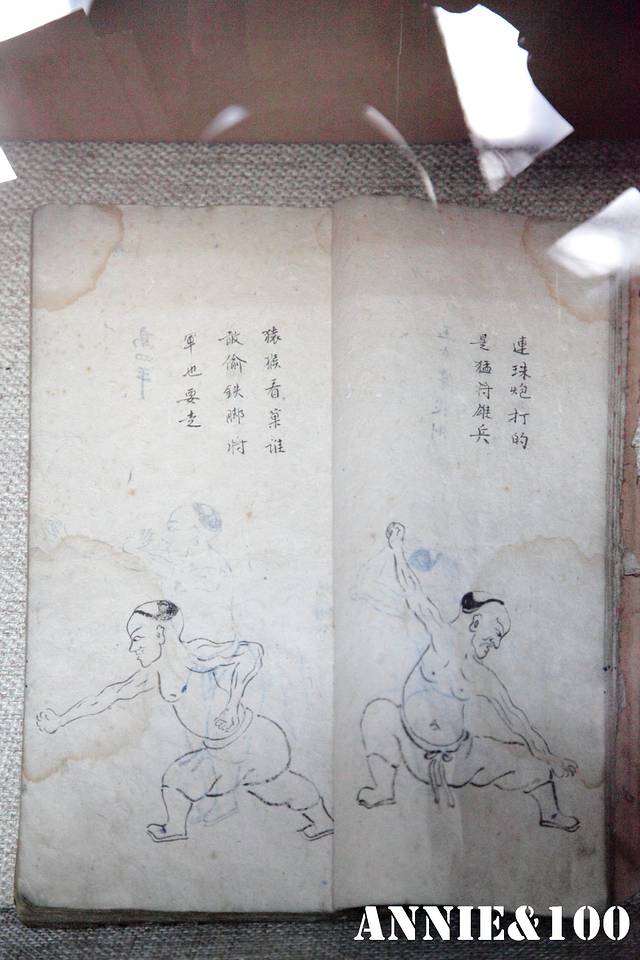 連珠炮打的
是猛将雄兵
猿猴看菓谁
敢偷铁脚将
軍也要走
ANNIE&100